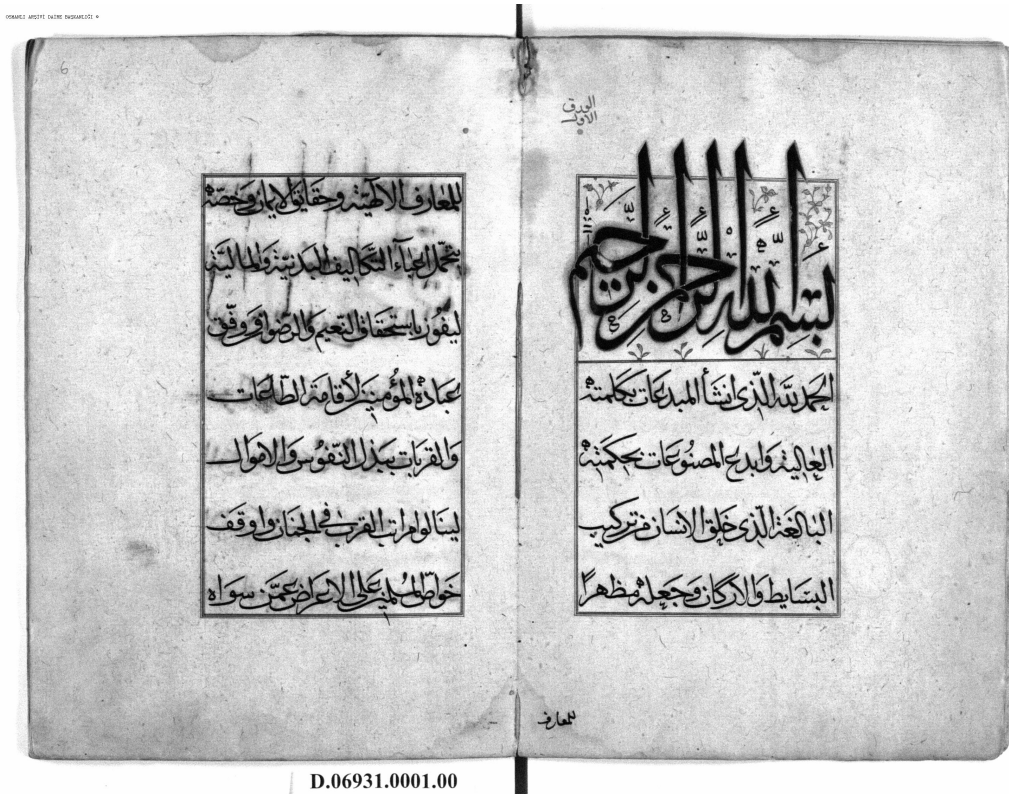 OSMANLI ARŞİVİ DAİRE BAŞKANLIĞI ©
6
الورق
الاول
بسم الله الرحمن الرحيم
الحمد لله الذى انشأ المبدعات بكلمته
العالية وابدع المصنوعات بحكمته
البالغة الذى خلق الانسان من تركيب
البسايط والاركان وجعله مظهرا
للمعارف
للمعارف الالهية وحقايق الايمان وخصه
بتحمل اعباء التكاليف البدنية والمالية
ليفوز باستحقاق النعيم والرضوان ووفق
عباده المؤمنين لأقامة الطاعات
والقربات ببذل النفوس والاموال
لينالوا مراتب القرب فى الجنان واوقف
خواص المسلمين على الاعراض عمن سواه
D.06931.0001.00